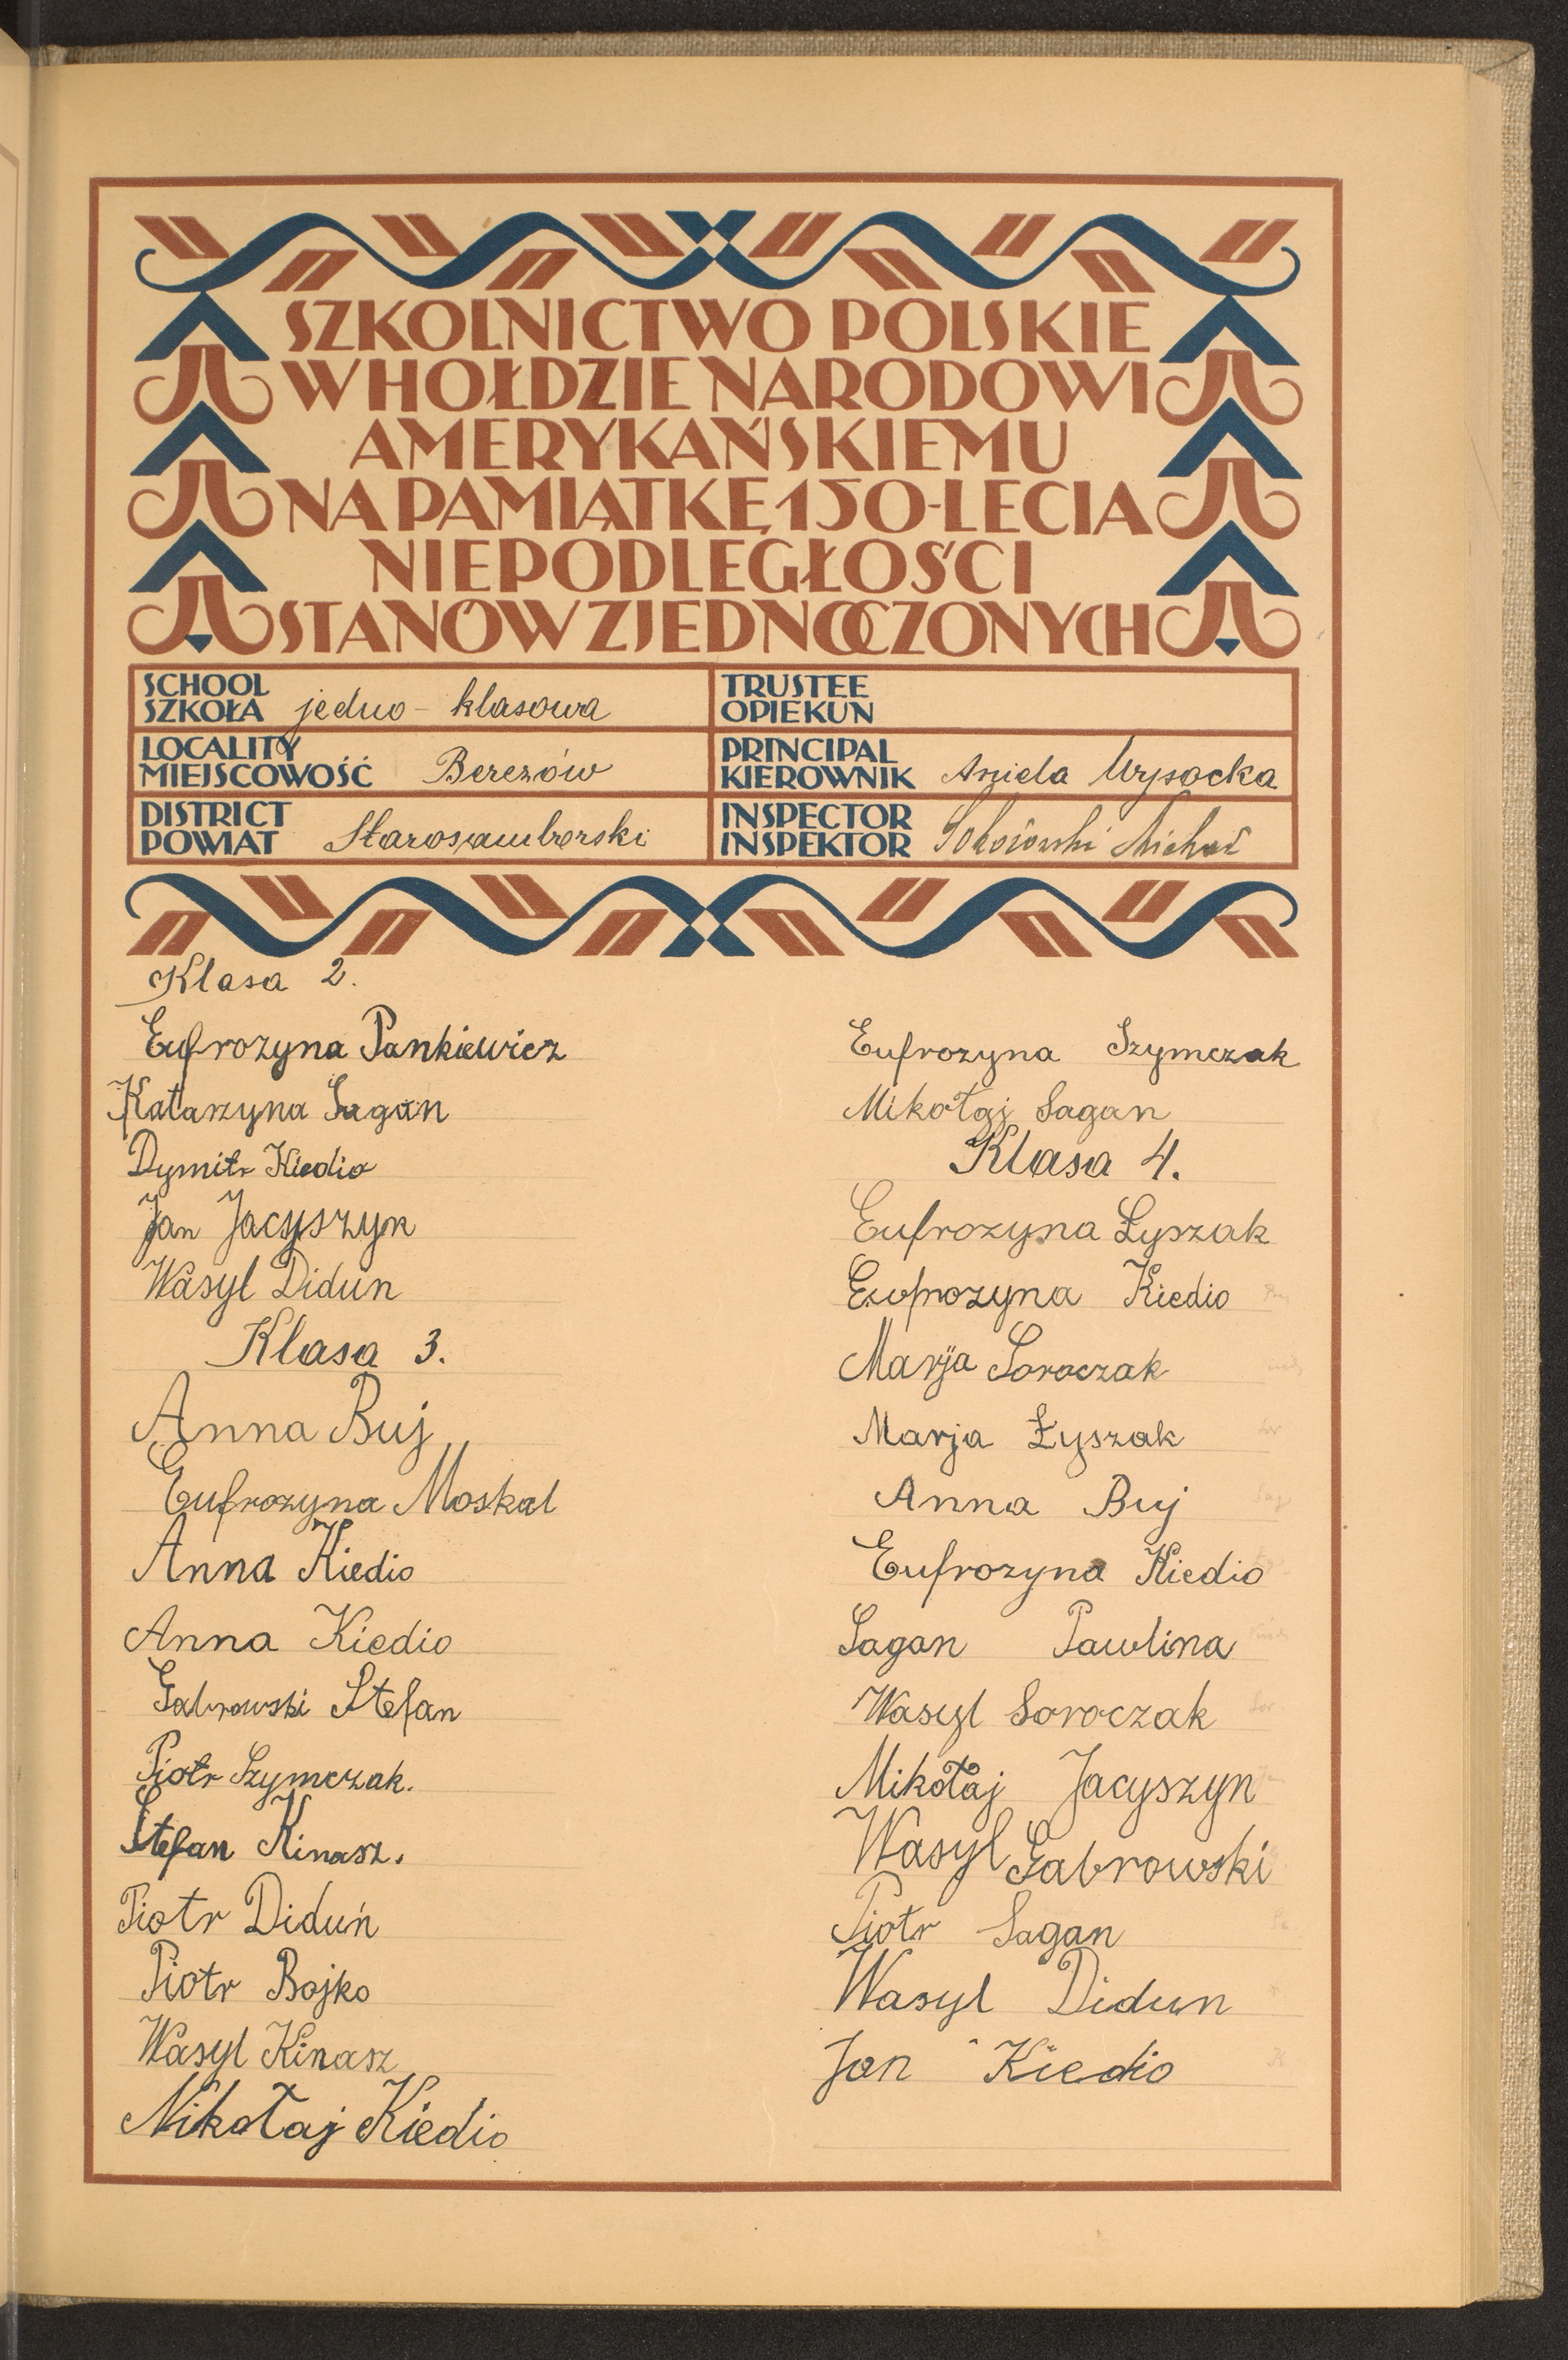 SZKOLNICTWO POLSKIE
W HOŁDZIE NARODOWI
AMERYKAŃSKIEMU
NA PAMIĄTKĘ 150-LECIA
NIEPODLEGŁOŚCI
STANÓW ZJEDNOCZONYCH
SCHOOL
SZKOŁA jedno - klasowa
TRUSTEE
OPIEKUN
LOCALITY
MIEJSCOWOŚĆ Berezów
PRINCIPAL
KIEROWNIK Aniela Wysocka
DISTRICT
POWIAT Starosamborski
INSPECTOR
INSPEKTOR Sokołowski Michał
Klasa 2.
Eufrozyna Pankiewicz
Katarzyna Sagan
Dymitr Kiedio
Jan Jacyszyn
Wasyl Didun
Klasa 3.
Anna Buj
Eufrozyna Moskal
Anna Kiedio
Anna Kiedio
Gabrowski Stefan
Piotr Szymczak.
Stefan Kinasz.
Piotr Diduń
Piotr Bojko
Wasyl Kinasz
Mikołaj Kiedio
Eufrozyna Szymczak
Mikołaj Sagan
Klasa 4.
Eufrozyna Łyszak
Eufrozyna Kiedio
Marja Soroczak
Marja Łyszak
Anna Buj
Eufrozyna Kiedio
Sagan Pawlina
Wasyl Soroczak
Mikołaj Jacyszyn
Wasyl Gabrowski
Piotr Sagan
Wasyl Didun
Jan Kiedio